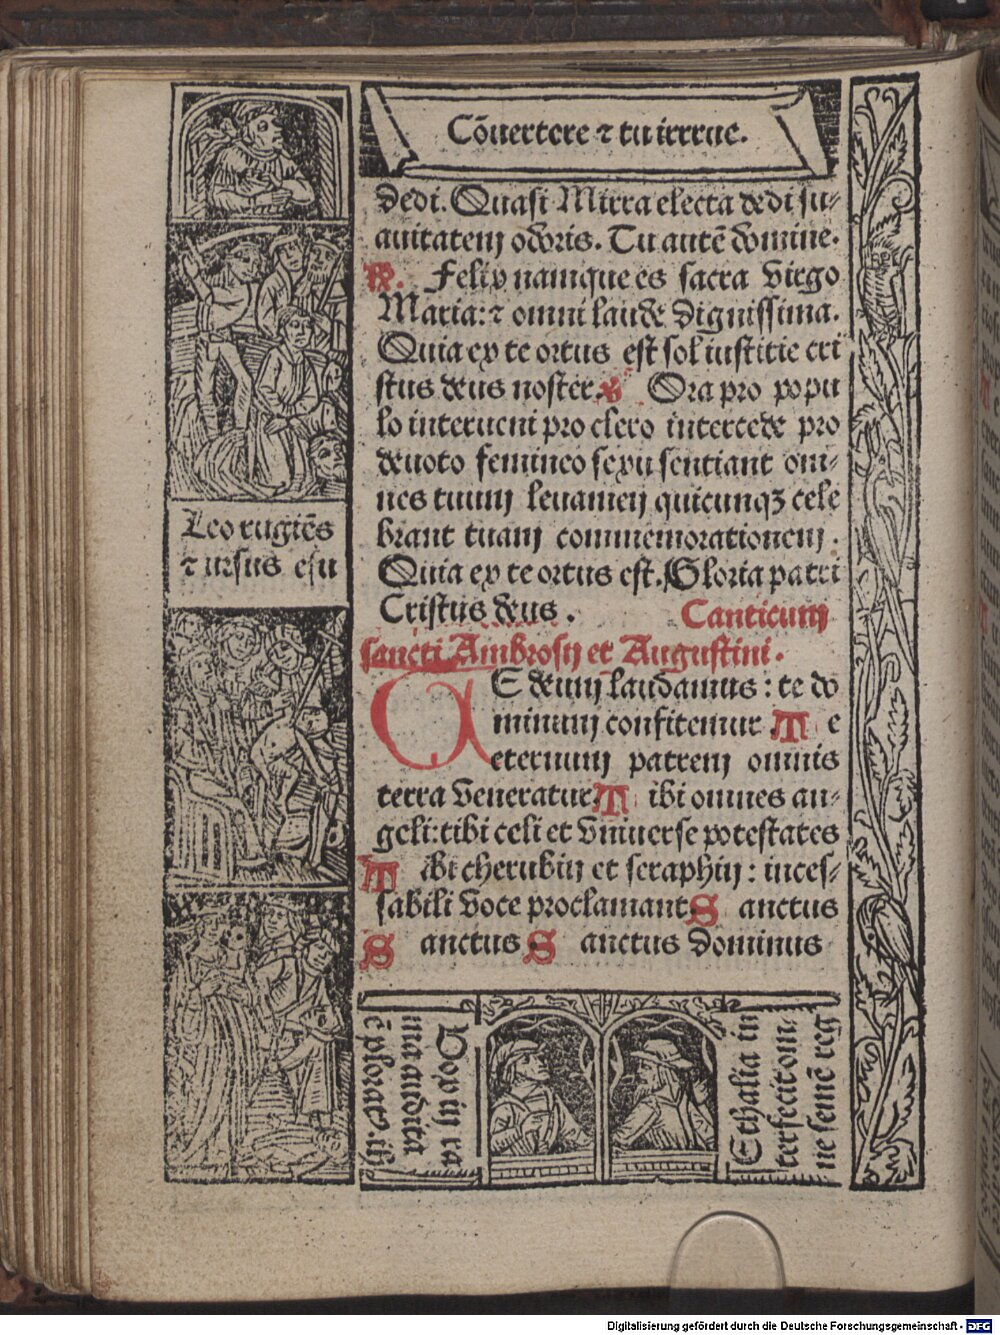 Cõuertere ⁊ tu irrrue.
dedi. Quasi Mirra electa dedi su⸗
auitatem odoris. Tu autẽ domine.
℟. Felix namque es sacra virgo
Maria: ⁊ omni laude dignissima.
Quia ex te ortus est sol iustitie cri
stus deus noster ℣ Ora pro popu
lo interueni pro clero intercede pro
deuoto femineo sexu sentiant om⸗
nes tuum leuamen quicunqꝫ cele
brant tuam commemorationem.
Quia ex te ortus est. Gloria patri
Cristus deus. Canticum
sancti Ambrosij et Augustini.
TE deum laudamus: te do
minum confitemur Te
eternum patrem omnis
terra veneratur Tibi omnes an⸗
geli: tibi celi et vniuerse potestates
Tibi cherubin et seraphin: inces⸗
sabili voce proclamant Sanctus
Sanctus Sanctus dominus
Leo rugiẽs
⁊ ursus esu
Vox in ra
ma audita
ẽ plorac. ⁊
Ethalia in
terfecit om
ne semẽ reg
Digitalisierung gefördert durch die Deutsche Forschungsgemeinschaft - DFG